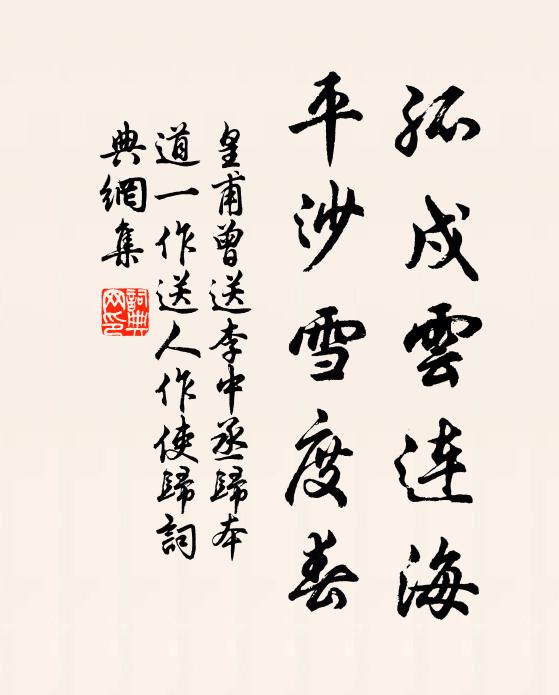 孤戍雲連海
平沙雪度春
皇甫曾送李中丞歸本
道一作送人作使歸詞
典網集
詞典网印